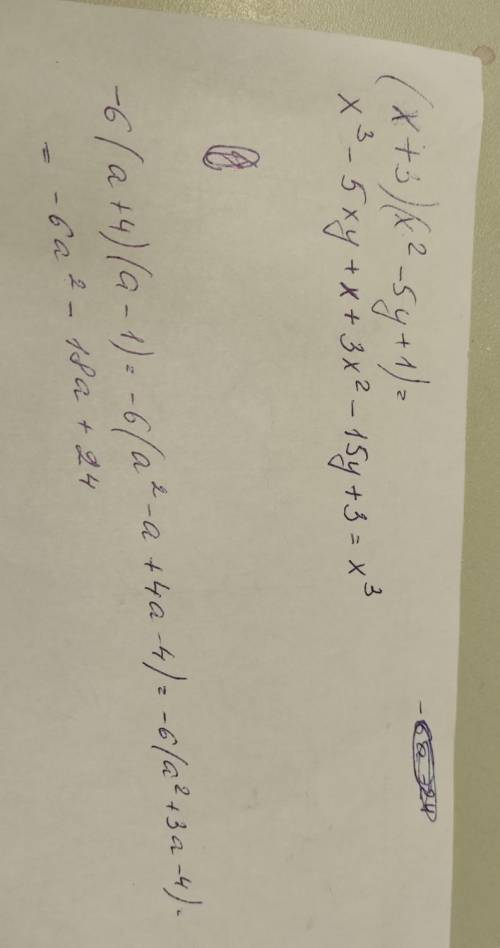 (x+3)(x² - 5y + 1) =
x³ - 5xy + x + 3x² - 15y + 3 = x³
-6(a+4)(a-1) = -6(a² - a + 4a - 4) = -6(a² + 3a - 4) =
= -6a² - 18a + 24